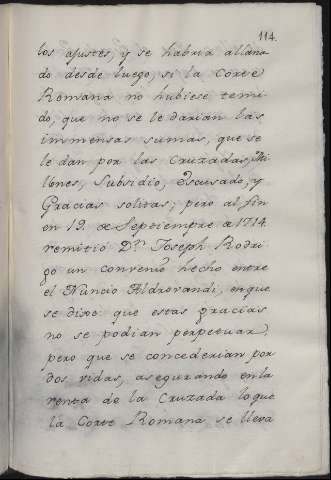 114.
los ajustes, y se habria allana
do desde luego, si la Corte
Romana no hubiese temi
do, que no se le darian las
immensas sumas, que se
le dan por las Cruzadas, Mi
llones, Subsidio, Escusado, y
Gracias solitas; pero al fin
en 19. de Septiembre de 1714.
remitió Dn. Joseph Rodri
go un convenio hecho entre
el Nuncio Aldrovandi, en que
se dixo que estas gracias
no se podian perpetuar,
pero que se concederian por
dos vidas, asegurando en la
renta de la Cruzada lo que
la Corte Romana se lleva